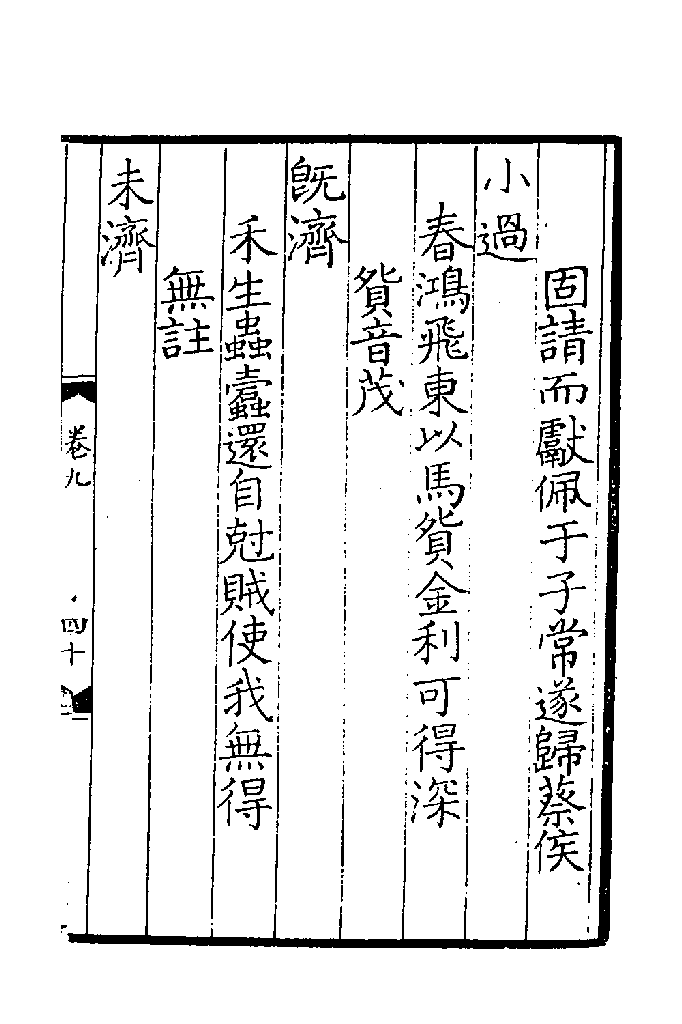 固請而獻佩于子常遂歸蔡侯
小過
春鴻飛東以馬貿金利可得深
貿音茂
既濟
禾生蟲蠹還自剋賊使我無得
無註
未濟
卷九
四十